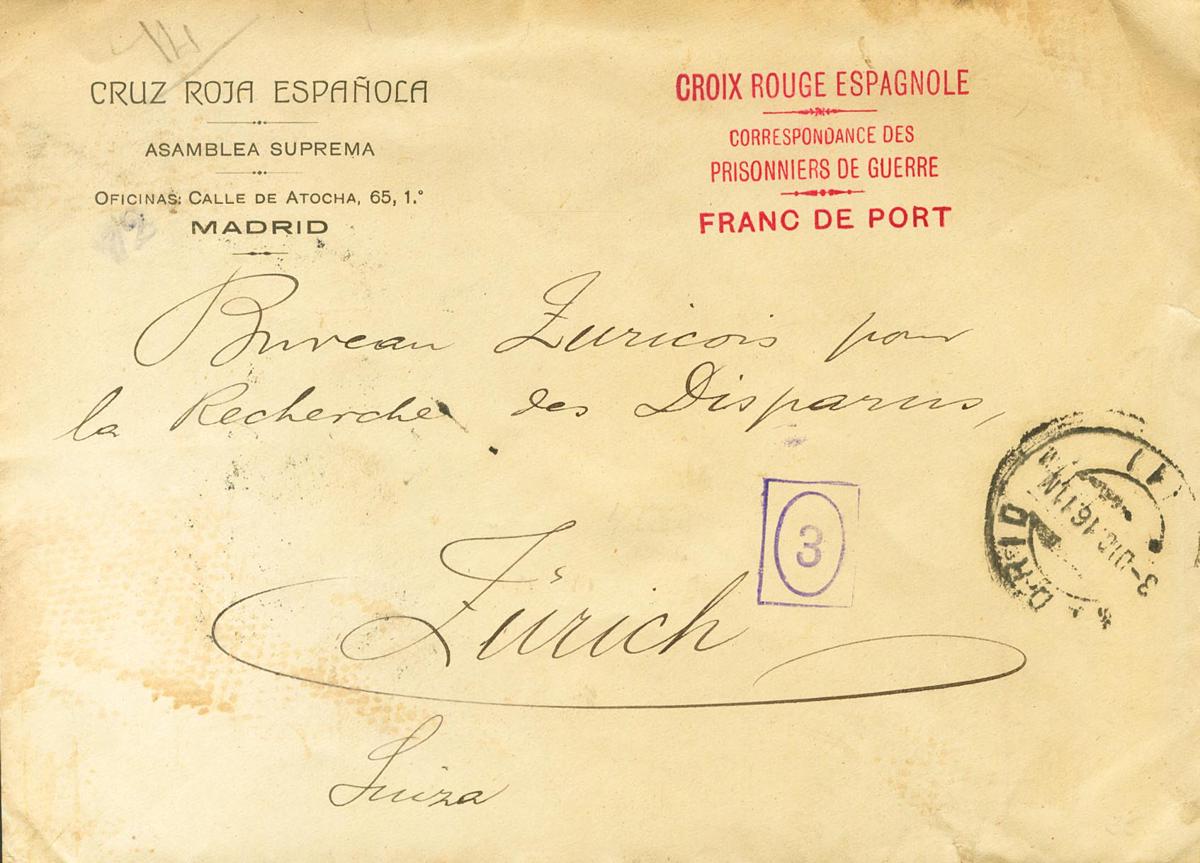 CRUZ ROJA ESPAÑOLA
ASAMBLEA SUPREMA
OFICINAS: CALLE DE ATOCHA, 65, 1.°
MADRID
12
CROIX ROUGE ESPAGNOLE
CORRESPONDANCE DES
PRISONNIERS DE GUERRE
FRANC DE PORT
Bureau Zuricois pour
la Recherche des Disparus,
3
Zürich
Suiza
3-DIC.16 11M